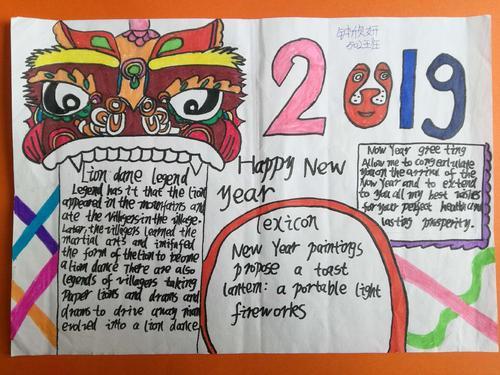 钟欣妍
502班
2019
Happy New
year
Lion dane legend
Legend has it that the lion
appeared in the mountains and
ate the villagers in the village.
Later, the villagers learned the
martial arts and imitated
the form of the lion to become
a lion dance There are also
legends of villagers taking
Paper lions and drums and
drams to drive away nian
evolved into a lion dance.
New Year greeting
Allow me to congratulate
you on the arrival of the
New Year and to extend
to you all my best wishes
for your perfect health and
lasting prosperity.
lexicon
New Year paintings
propose a toast
lantern: a portable light
fireworks